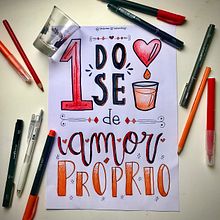 1 DO
SE
de
amor
PRÓPRIO